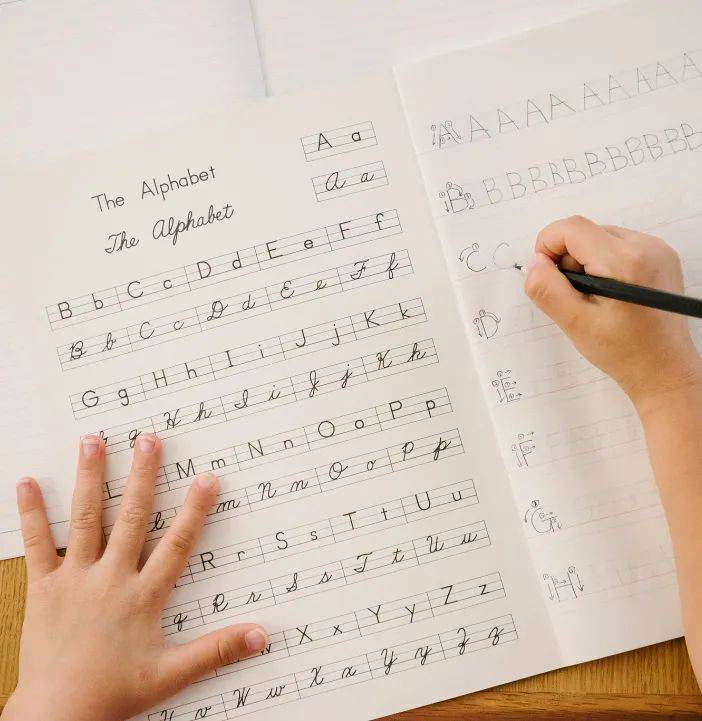 A a
The Alphabet
A a
The Alphabet
B b C c D d E e F f
B b C c D d E e F f
G g H h I i J j K k
g H h I i J j K k
L M m N n O o P p
l m N n O o P p
R r S s T t U u
q R r S s T t U u
w X x Y y Z z
v W w X x Y y Z z
A A A A A A A A A A
B B B B B B B B B B B B
C C
D
E
F
G
H